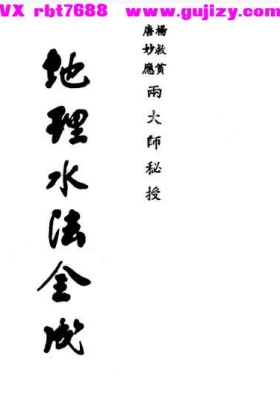 VX rbt7688 www.gujizy.com
楊救貧
唐妙應
兩大師秘授
地理水法全成